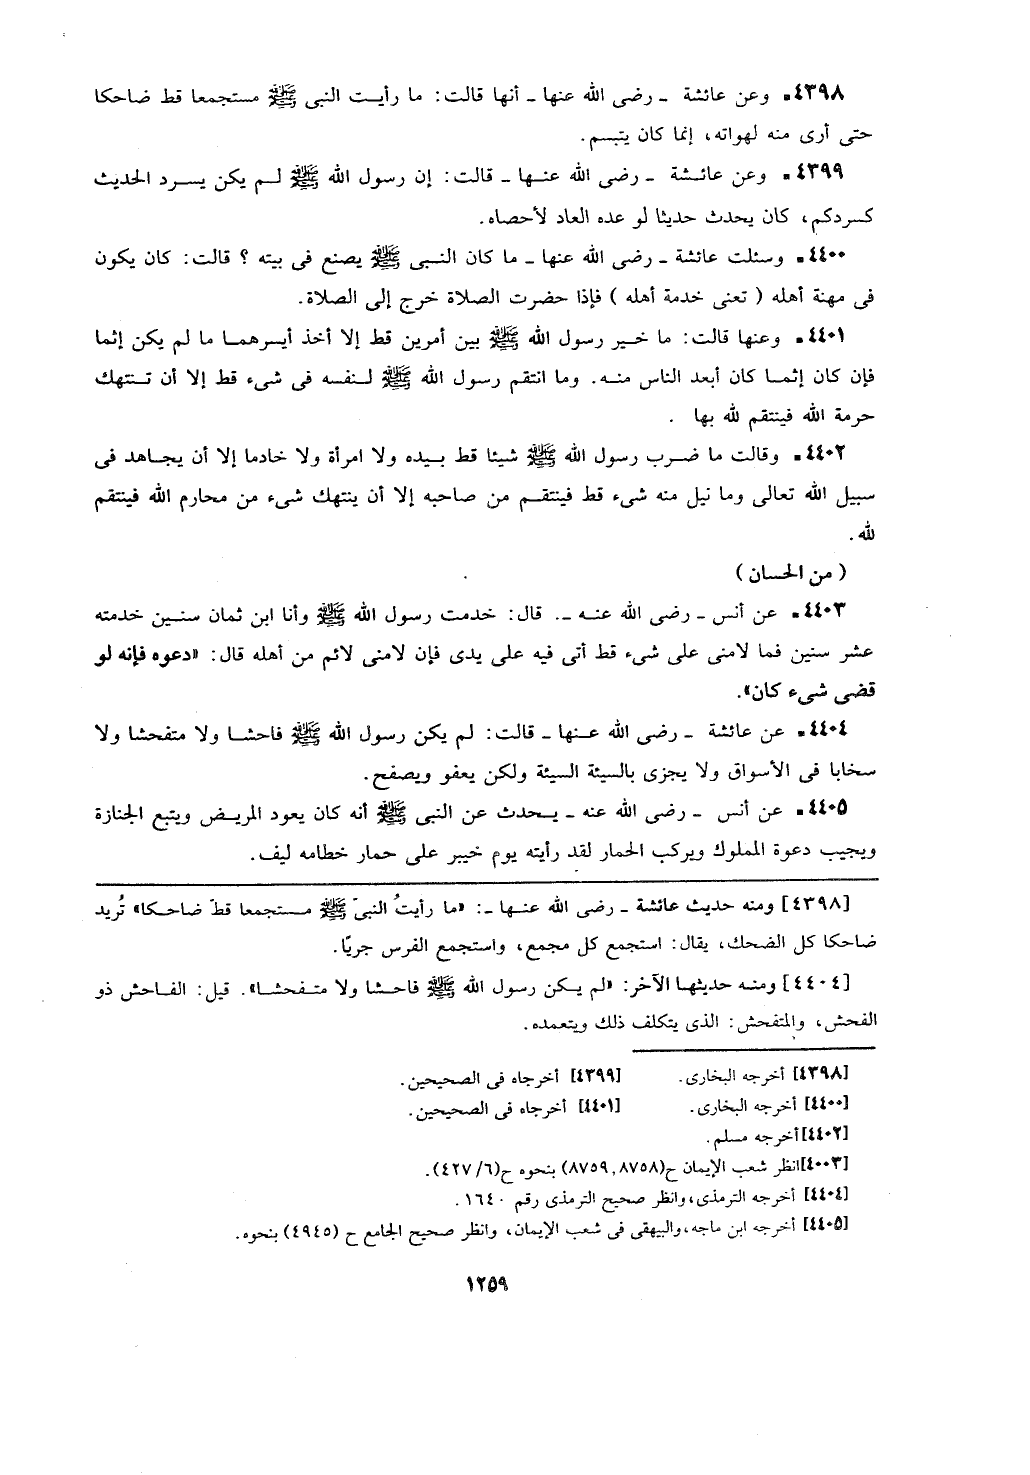 ٤٣٩٨. وعن عائشة ـ رضى الله عنها ـ أنها قالت: ما رأيت النبى ﷺ مستجمعا قط ضاحكا
حتى أرى منه لهواته، إنما كان يتبسم.
٤٣٩٩. وعن عائشة ـ رضى الله عنها ـ قالت: إن رسول الله ﷺ لم يكن يسرد الحديث
كسردكم، كان يحدث حديثا لو عده العاد لأحصاه.
٤٤٠٠. وسئلت عائشة ـ رضى الله عنها ـ ما كان النبى ﷺ يصنع فى بيته ؟ قالت: كان يكون
فى مهنة أهله ( تعنى خدمة أهله ) فإذا حضرت الصلاة خرج إلى الصلاة.
٤٤٠١. وعنها قالت: ما خير رسول الله ﷺ بين أمرين قط إلا أخذ أيسرهما ما لم يكن إثما
فإن كان إثما كان أبعد الناس منه. وما انتقم رسول الله ﷺ لنفسه فى شىء قط إلا أن تنتهك
حرمة الله فينتقم لله بها .
٤٤٠٢. وقالت ما ضرب رسول الله ﷺ شيئا قط بيده ولا امرأة ولا خادما إلا أن يجاهد فى
سبيل الله تعالى وما نيل منه شىء قط فينتقم من صاحبه إلا أن ينتهك شىء من محارم الله فينتقم
لله .
( من الحسان )
٤٤٠٣. عن أنس ـ رضى الله عنه ـ. قال: خدمت رسول الله ﷺ وأنا ابن ثمان سنين خدمته
عشر سنين فما لامنى على شىء قط أتى فيه على يدى فإن لامنى لائم من أهله قال: «دعوه فإنه لو
قضى شىء كان».
٤٤٠٤. عن عائشة ـ رضى الله عنها ـ قالت: لم يكن رسول الله ﷺ فاحشا ولا متفحشا ولا
سخابا فى الأسواق ولا يجزى بالسيئة السيئة ولكن يعفو ويصفح.
٤٤٠٥. عن أنس ـ رضى الله عنه ـ يحدث عن النبى ﷺ أنه كان يعود المريض ويتبع الجنازة
ويجيب دعوة المملوك ويركب الحمار لقد رأيته يوم خيبر على حمار خطامه ليف.
[٤٣٩٨] ومنه حديث عائشة ـ رضى الله عنها ـ: «ما رأيتُ النبىّ ﷺ مستجمعا قطّ ضاحكا» تُريد
ضاحكا كل الضحك، يقال: استجمع كل مجمع، واستجمع الفرس جريًا.
[٤٤٠٤] ومنه حديثها الآخر: «لم يكن رسول الله ﷺ فاحشا ولا متفحشا». قيل: الفاحش ذو
الفحش، والمتفحش: الذى يتكلف ذلك ويتعمده.
[٤٣٩٨] أخرجه البخارى. [٤٣٩٩] أخرجاه فى الصحيحين.
[٤٤٠٠] أخرجه البخارى. [٤٤٠١] أخرجاه فى الصحيحين.
[٤٤٠٢] أخرجه مسلم.
[٤٠٠٣] انظر شعب الإيمان ح(٨٧٥٨, ٨٧٥٩) بنحوه ح(٤٢٧/٦).
[٤٤٠٤] أخرجه الترمذى، وانظر صحيح الترمذى رقم ١٦٤٠.
[٤٤٠٥] أخرجه ابن ماجه، والبيهقى فى شعب الإيمان، وانظر صحيح الجامع ح (٤٩٤٥) بنحوه.
١٢٥٩